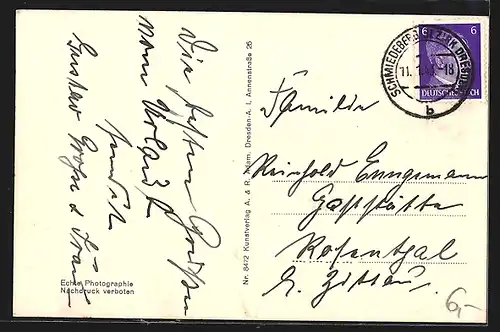 Die besten Grüße
vom Urlaub
sendet
Gustav & Frau
Echte Photographie
Nachdruck verboten
Nr. 8472 Kunstverlag A. & R. Adam, Dresden-A. I, Annenstraße 25
SCHMIEDEBERG BZ DRESDEN
11. -18
b
6 6
DEUTSCHES REICH
Familie
Reinhold Enngemann
Gaststätte
Rosenthal
b. Zittau
6,-